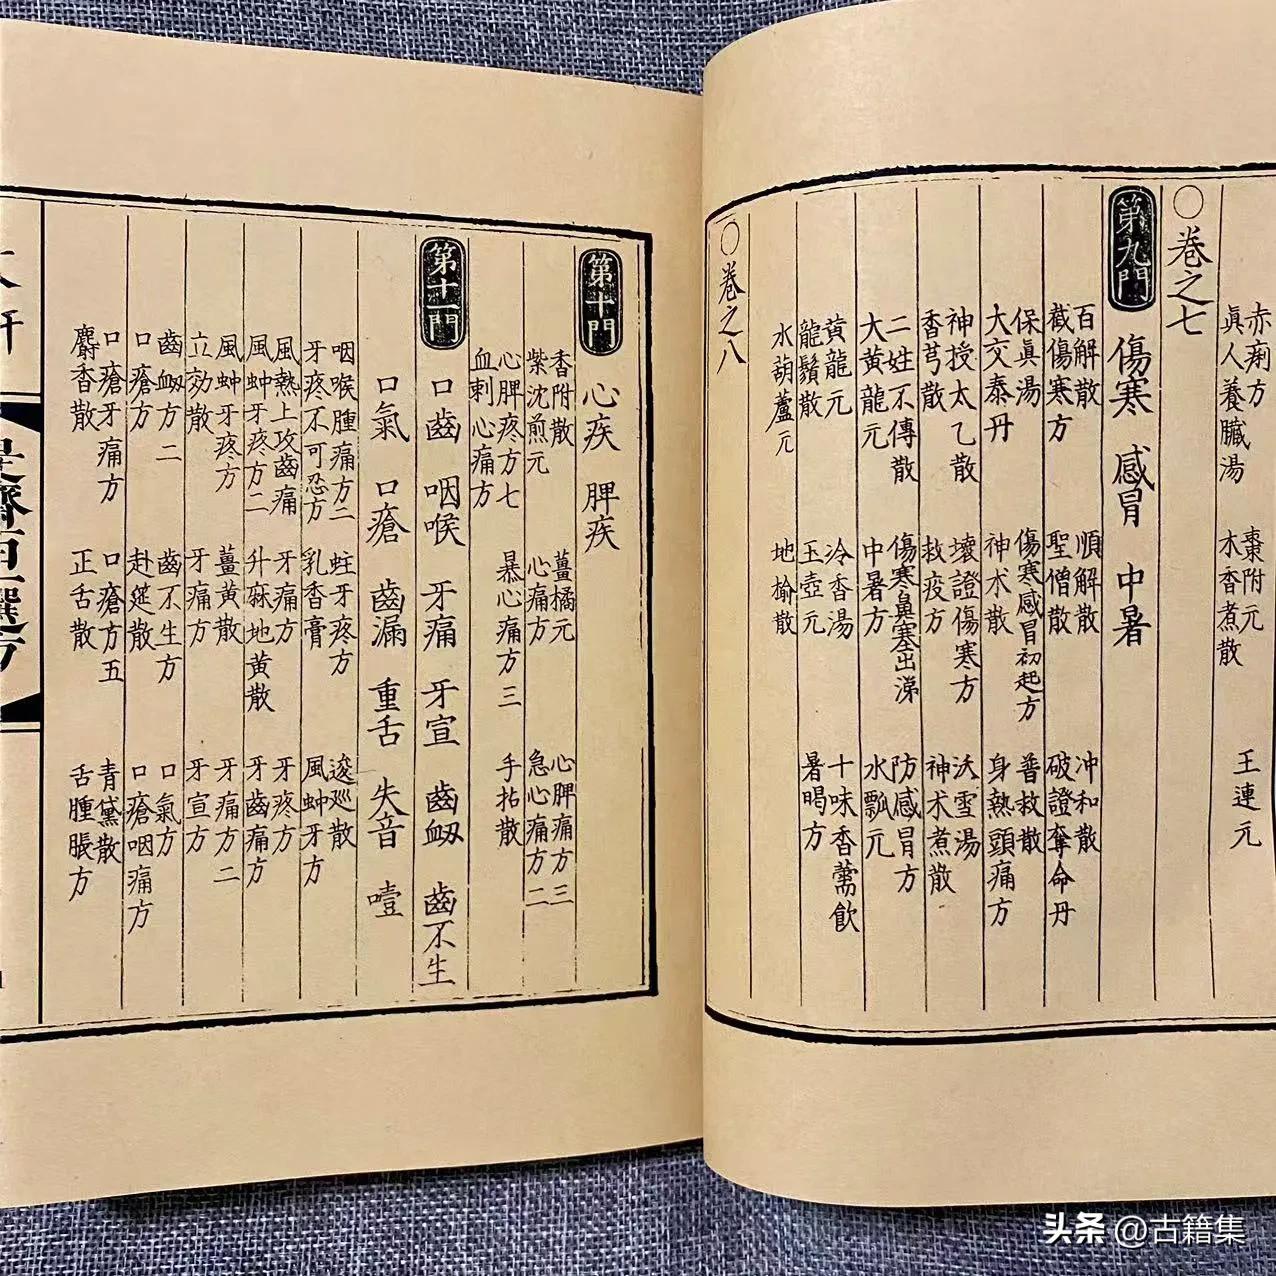 赤痢方 棗附元 王連元
眞人養臟湯 木香煮散
○卷之七
第九門 傷寒 感冒 中暑
百解散 順解散 冲和散
截傷寒方 聖僧散 破證奪命丹
保眞湯 傷寒感冒初起方 普救散
大交泰丹 神朮散 身熱頭痛方
神授太乙散 壞證傷寒方 沃雪湯
香芎散 救疫方 神朮煮散
二姓不傳散 傷寒鼻塞出涕 防感冒方
大黃龍元 中暑方 水瓢元
黃龍元 冷香湯 十味香薷飲
龍鬚散 玉壺元 暑暍方
水葫蘆元 地榆散
○卷之八
第十門 心疾 脾疾
香附散 薑橘元 心脾痛方三
紫沈煎元 心痛方 急心痛方二
心脾疼方七 暴心痛方三 手拈散
血刺心痛方
第十一門 口齒 咽喉 牙痛 牙宣 齒衂 齒不生
口氣 口瘡 齒漏 重舌 失音 噎
咽喉腫痛方二 蛀牙疼方 逡巡散
牙疼不可忍方 乳香膏 風蚛牙方
風熱上攻齒痛 牙痛方 牙疼方
風蚛牙疼方二 升麻地黃散 牙齒痛方
風蚛牙疼方 薑黃散 牙痛方二
立効散 牙痛方 牙宣方
齒衂方二 齒不生方 口氣方
口瘡方 赴筵散 口瘡咽痛方
口瘡牙痛方 口瘡方五 青黛散
麝香散 正舌散 舌腫脹方
是齋百一選方